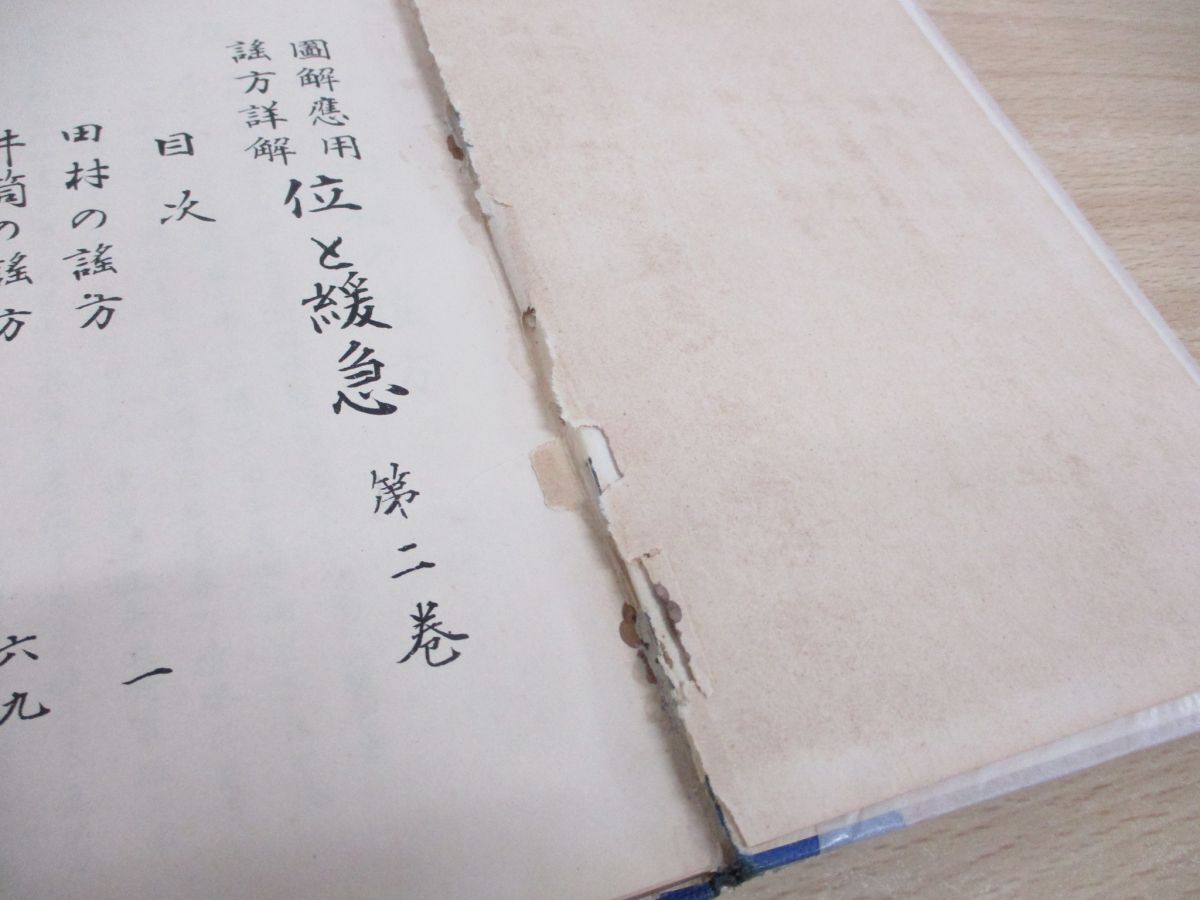 圖解應用
謠方詳解
位と緩急 第二巻
目次
田村の謠方 一
井筒の謠方 六九